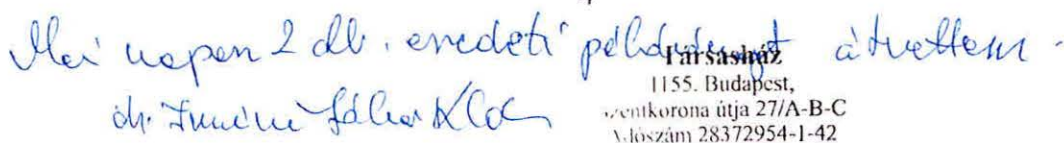 Mai napon 2 db. eredeti példányt átvettem.
dr.
Társasház
1155. Budapest,
Szentkorona útja 27/A-B-C
Adószám 28372954-1-42